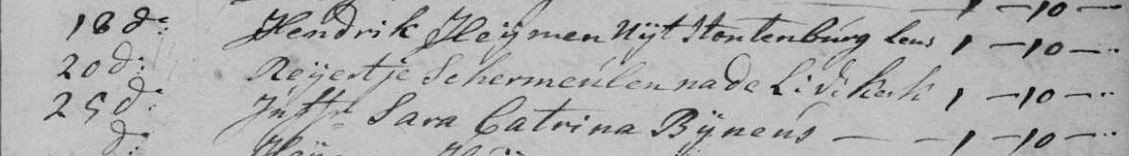 1 - 10 -
18 do: Hendrik Heijmen Uijt Stoutenburg Leus 1 - 10 -
20 d: Reijertje Schermeulen na de L: V: Kerk 1 - 10 -
25 do: Juffr Sara Catrina Bijnens - - 1 - 10 -
do: